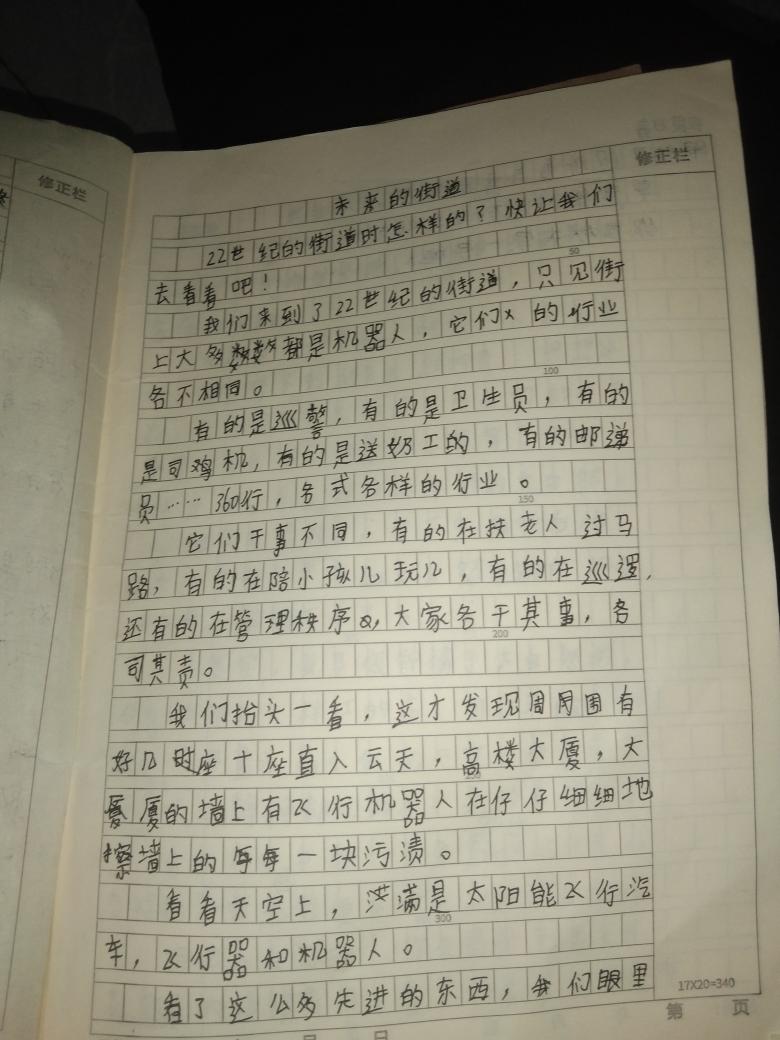 修正栏
修正栏
未来的街道
22世纪的街道时怎样的？快让我们
50
去看看吧！
我们来到了22世纪的街道，只见街
上大多数都是机器人，它们的行业
100
各不相同。
有的是巡警，有的是卫生员，有的
是司鸡机，有的是送奶工的，有的邮递
员……360行，各式各样的行业。
150
它们干事不同，有的在扶老人过马
路，有的在陪小孩儿玩儿，有的在巡逻，
还有的在管理秩序，大家各干其事，各
200
司其责。
我们抬头一看，这才发现周周围有
好几时座十座直入云天，高楼大厦，大
厦厦的墙上有飞行机器人在仔仔细细地
擦墙上的每每一块污渍。
看看天空上，满是太阳能飞行汽
300
车，飞行器和机器人。
看了这么多先进的东西，我们眼里
17X20=340
第 页
月 日